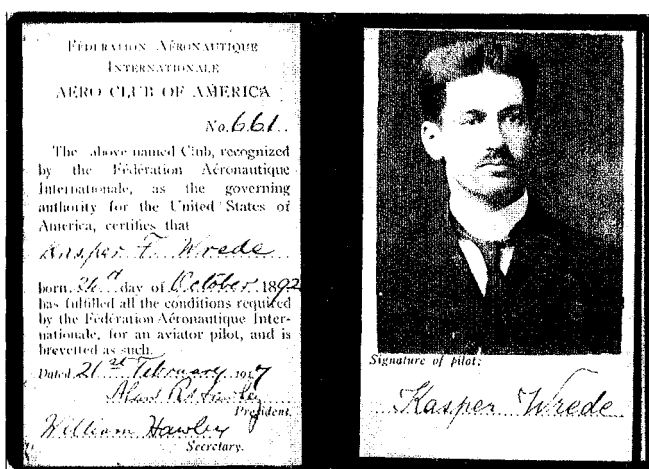 FÉDÉRATION AÉRONAUTIQUE
INTERNATIONALE
AERO CLUB OF AMERICA
No. 661
The above named Club, recognized
by the Fédération Aéronautique
Internationale, as the governing
authority for the United States of
America, certifies that
Kasper F. Wrede
born day of October 1892
has fulfilled all the conditions required
by the Fédération Aéronautique Inter-
nationale, for an aviator pilot, and is
brevetted as such.
Dated 21st February 1917
Hawley
President.
William Hawley
Secretary.
Signature of pilot:
Kasper Wrede